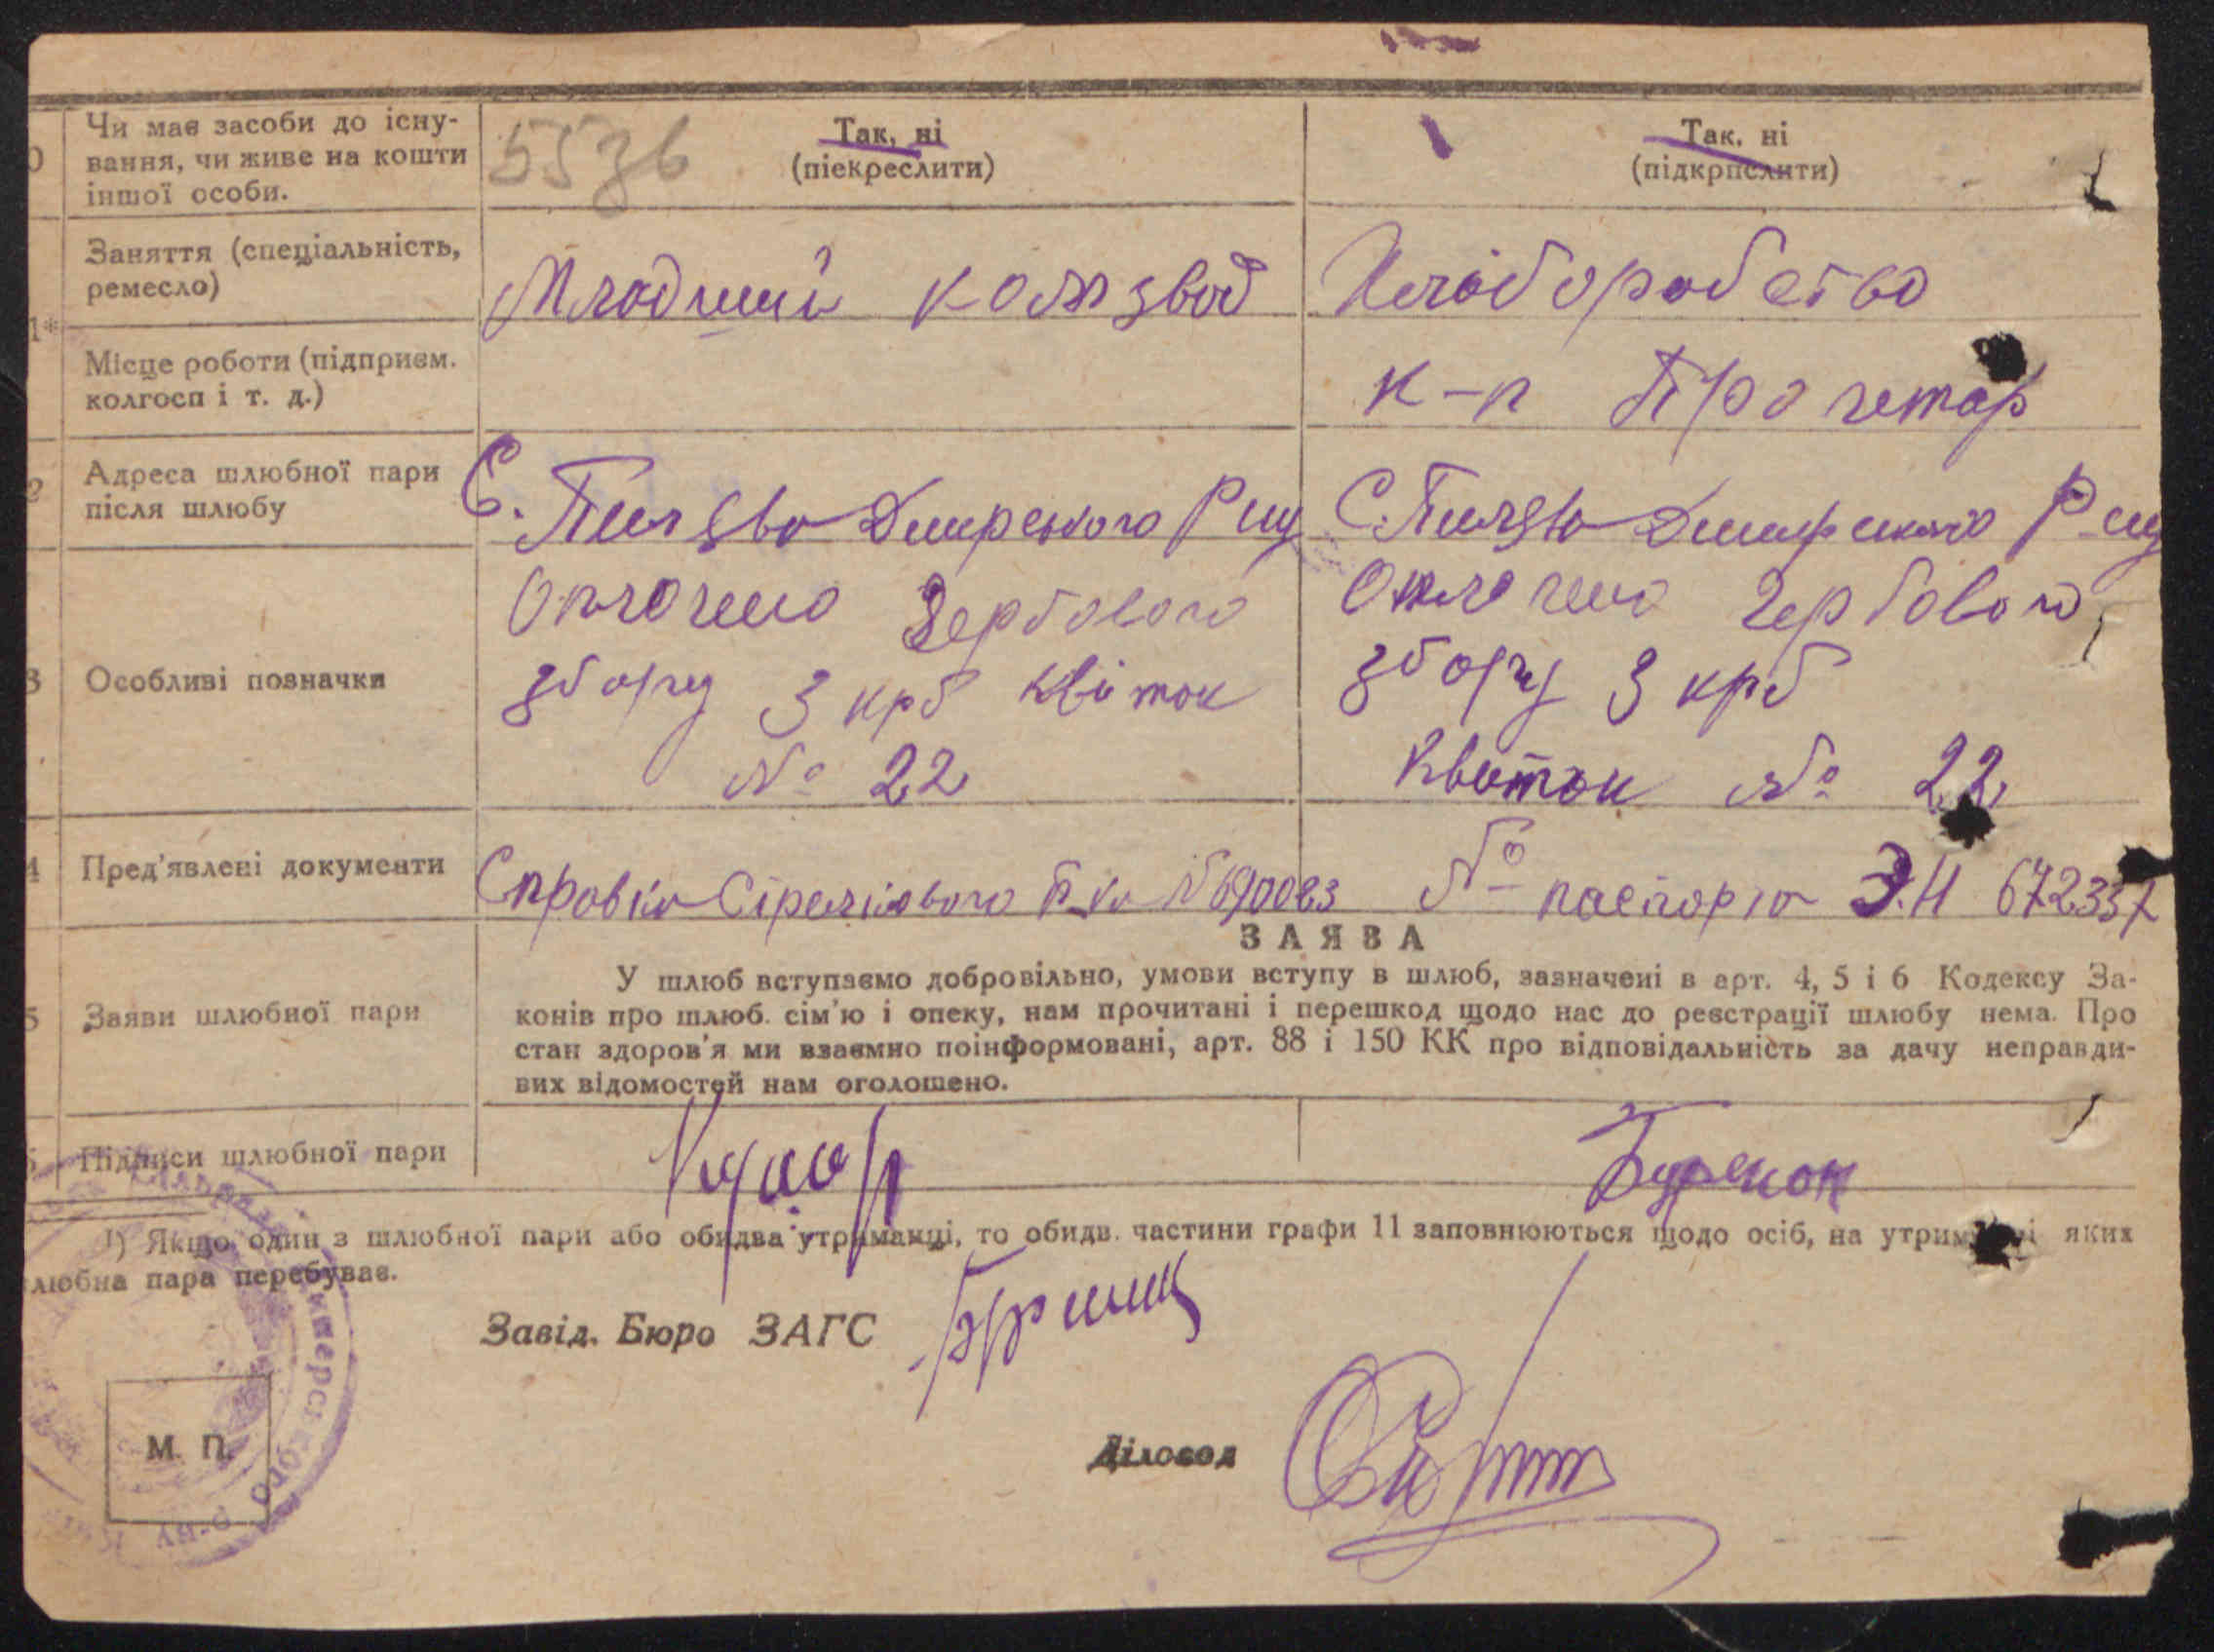 Чи має засоби до існу-
вання, чи живе на кошти
іншої особи.
5536
Так, ні
(піекреслити)
Так. ні
(підкрпслити)
Заняття (спеціальність,
ремесло)
Младший комзвод
Хліборобство
1*
Місце роботи (підприєм.
колгосп і т. д.)
к-п Пролетар
2
Адреса шлюбної пари
після шлюбу
С. Пилява Димерського Р-ну
С. Пилява Димерського Р-ну
3
Особливі позначки
Оплочено гербового
збору 3 крб квіток
№ 22
Оплочено гербового
збору 3 крб
Квиток № 22
4
Пред'явлені документи
Справка Стрелкового п-ка № 690083
№ паспорта Э.Н 672337
5
Заяви шлюбної пари
ЗАЯВА
У шлюб вступаємо добровільно, умови вступу в шлюб, зазначені в арт. 4, 5 і 6 Кодексу За-
конів про шлюб. сім'ю і опеку, нам прочитані і перешкод щодо нас до реєстрації шлюбу нема. Про
стан здоров'я ми взаємно поінформовані, арт. 88 і 150 КК про відповідальність за дачу неправди-
вих відомостей нам оголошено.
Підписи шлюбної пари
1) Якщо один з шлюбної пари або обидва утриманці, то обидв. частини графи 11 заповнюються щодо осіб, на утриманні яких
любна пара перебуває.
Завід. Бюро ЗАГС
Діловод
М. П.
р-ну